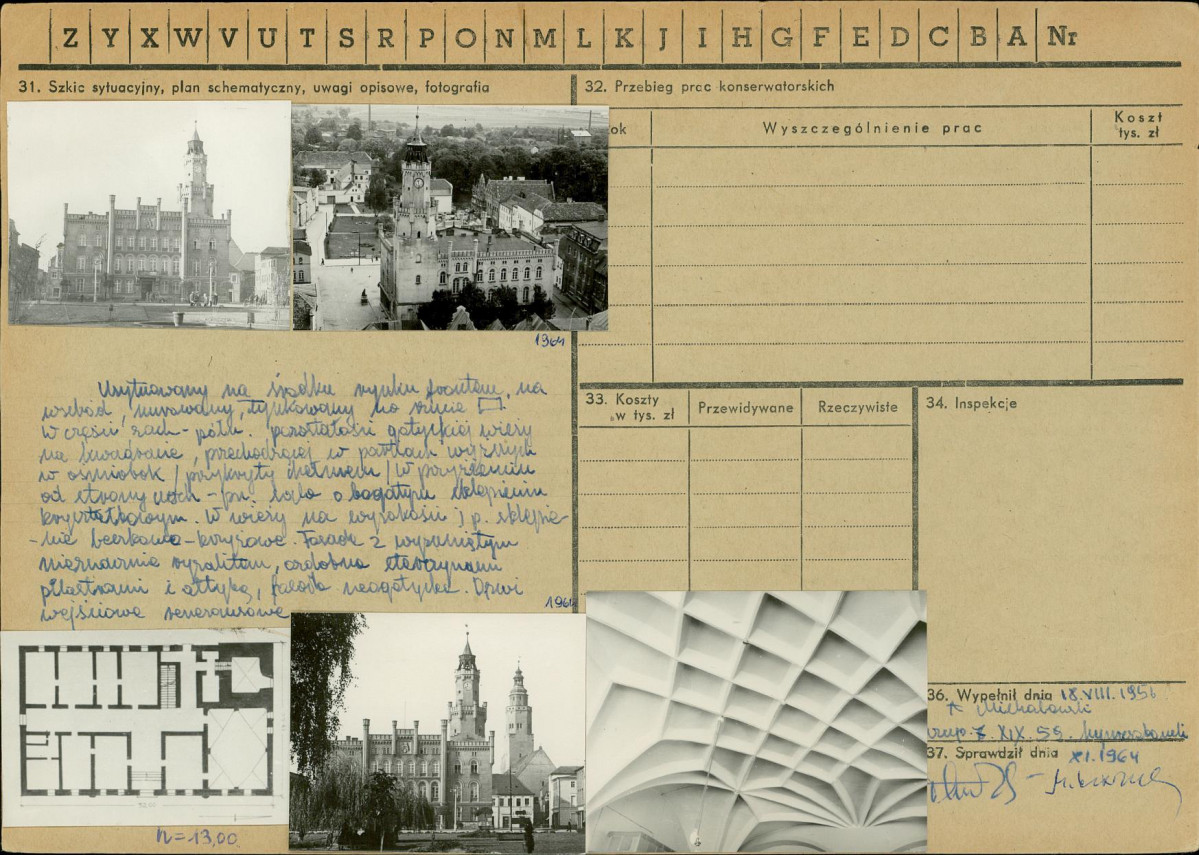 Z Y X W V U T S R P O N M L K J I H G F E D C B A Nr
31. Szkic sytuacyjny, plan schematyczny, uwagi opisowe, fotografia
32. Przebieg prac konserwatorskich
ok
Wyszczególnienie prac
Koszt
tys. zł
1964
Usytuowany na środku rynku frontem, na
wschód, murowany, tynkowany na rzucie
w części zach-półn. pozostałości gotyckiej wieży
na kwadracie, przechodzącej w partiach wyższych
w ośmiobok /przykryty hełmem/ w przyziemiu
od strony zach-pn. sala o bogatym sklepieniu
kryształkowym. W wieży na wysokości j p. sklepie
-nie beczkowo-krzyżowe. Fasada z wysuniętym
nieznacznie ryzalitem, ozdobna
pilastrami i attyką, fasada neogotycka. Drzwi
wejściowe renesansowe
1964
33. Koszty
w tys. zł
Przewidywane
Rzeczywiste
34. Inspekcje
h = 13,00
36. Wypełnił dnia 18.VIII.1956
A Michałowski
37. Sprawdził dnia XI.1964